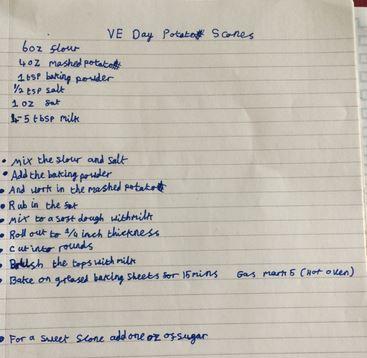 VE Day Potato Scones
6oz flour
4oz mashed potato
1 tsp baking powder
½ tsp salt
1 oz fat
5 tbsp milk
• Mix the flour and salt
• Add the baking powder
• And work in the mashed potato
• Rub in the fat
• Mix to a soft dough with milk
• Roll out to ¾ inch thickness
• Cut into rounds
• Brush the tops with milk
• Bake on greased baking sheets for 15 mins Gas mark 5 (Hot oven)
• For a sweet scone add one oz of sugar